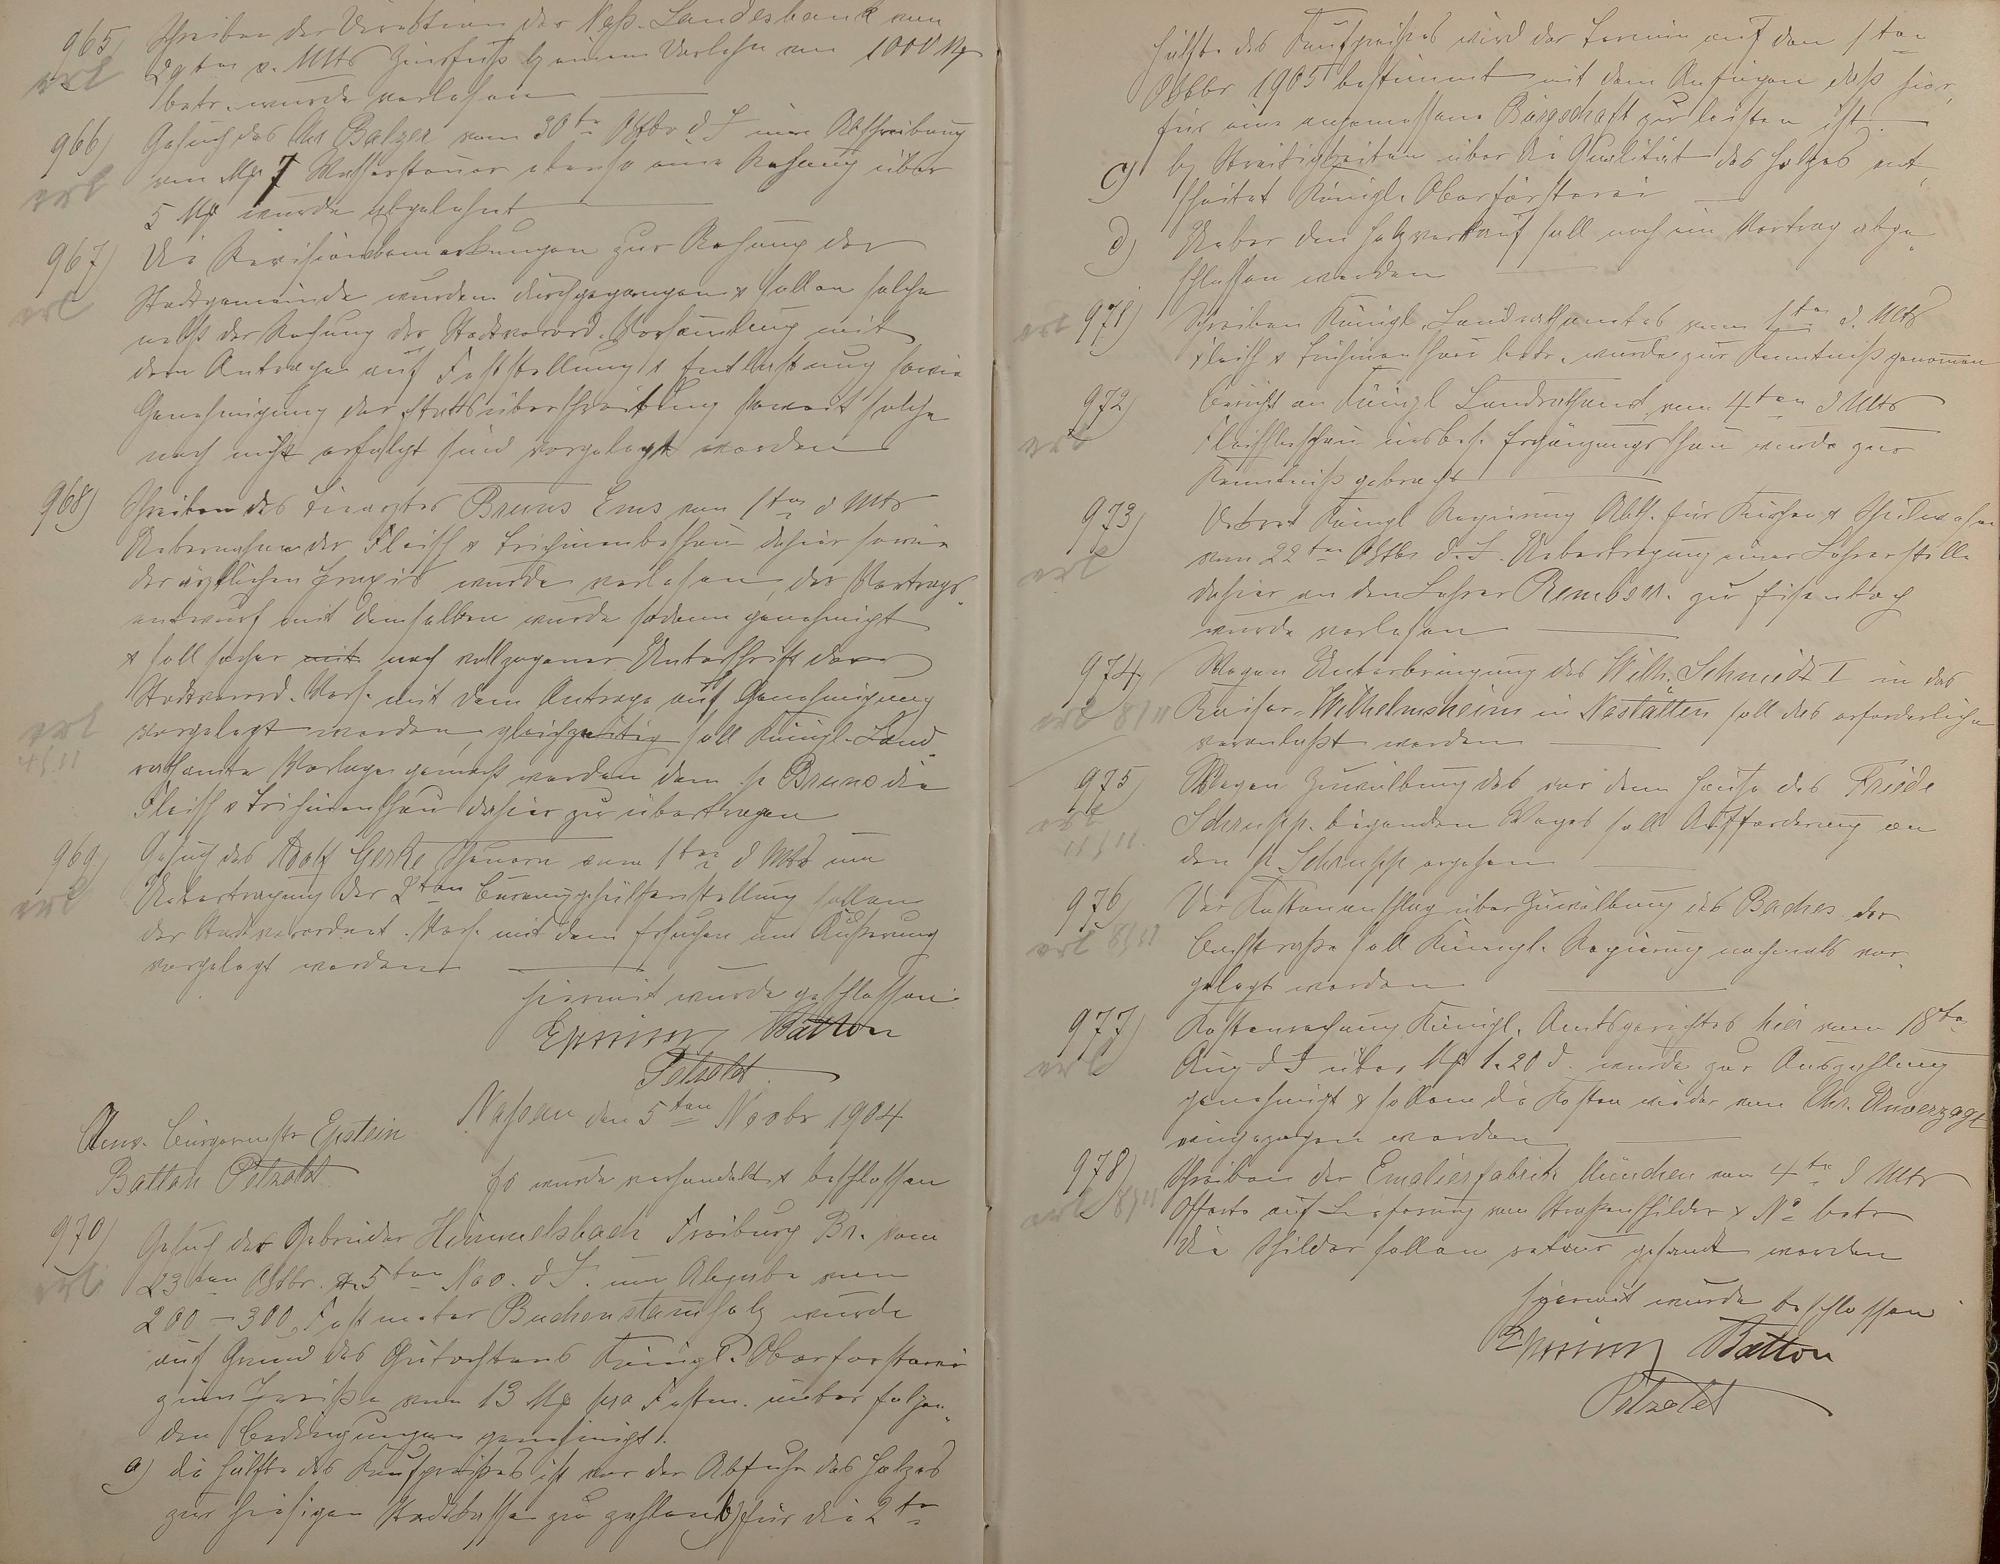 965) Schreiben der Direktion der Nass. Landesbank vom
erl 29ten v. Mts Zinsfuß b. einem Darlehn von 1000 Mk
betr. wurde verlesen
966) Gesuch des Chr Balzer vom 30ten Oktbr d J um Abschreibung
erl von Mk 7 Wassersteuer ebenso eine Rechnung über
5 Mk wurde abgelehnt
967) Die Revisionsbemerkungen zur Rechnung der
erl Stadtgemeinde wurden durchgegangen & sollen solche
nebst der Rechnung der Stadtverord. Versamlung mit
dem Antrage auf Feststellung & Entlastung sowie
Genehmigung der Etatsüberschreitung soweit solche
noch nicht erfolgt sind vorgelegt werden
968) Schreiben des Tierarztes Bruns Ems vom 1ten d Mts
Uebernahme der Fleisch & Trichinenbeschau dahier sowie
der ärztlichen Praxis wurde verlesen, der Vertrags-
entwurf mit demselben wurde sodann genehmigt
& soll solcher mit nach vollzogener Unterschrift der
Stadtverord. Vers. mit dem Antrage auf Genehmigung
erl vorgelegt werden, gleichzeitig soll Königl. Land-
4/11 rathsamte Vorlage gemacht werden dem p Bruns die
Fleisch & Trichinenschau dahier zu übertragen
969) Gesuch des Adolf Gerke Scheuern vom 1ten d Mts um
erl Uebertragung der 2ten Bureaugehülfenstellung sollen
der Stadtverordnet. Vers. mit dem Ersuchen um Äußerung
vorgelegt werden
Hiermit wurde geschlossen
Epstein Batton
Petzold
Nassau den 5ten Novbr 1904
Anw. Bürgermstr Epstein
Batton Petzold
Es wurde verhandelt & beschlossen
970) Gesuch der Gebrüder Himmelsbach Freiburg Br. vom
erl 23ten Oktbr. & 5ten Nov. d J. um Abgabe von
200 – 300 Festmeter Buchenstammholz wurde
auf Grund des Gutachtens Königl. Oberförsterei
zum Preiße von 13 Mk pro Festm. unter folgen-
den Bedingungen genehmigt.
a) die Hälfte des Kaufpreißes ist vor der Abfuhr des Holzes
zur hiesigen Stadtkasse zu zahlen b) für die 2te
Hälfte des Kaufpreißes wird der Termin auf den 1ten
Oktbr 1905 bestimmt mit dem Anfügen daß hier-
für eine angemessene Bürgschaft zu leisten ist.
c) by Streitigkeiten über die Qualität des Holzes ent-
scheidet Königl. Oberförsterei
d) Ueber den Holzverkauf soll noch ein Vertrag abge-
schlossen werden
erl 971) Schreiben Königl. Landrathsamtes vom 1ten d. Mts
Fleisch & Trichinenschau betr. wurde zur Kenntniß genomen
972) Bericht an Königl Landrathsamt vom 4ten d Mts
erl Fleischbeschau insbes. Ergänzungsschau wurde zur
Kenntniß gebracht
973) Dekret Königl Regierung Abth. für Kirchen & Schulwesen
erl vom 22ten Oktbr d. J. Uebertragung einer Lehrerstelle
dahier an den Lehrer Rembser. zu Eisenbach
wurde verlesen
974. Wegen Unterbringung des Wilh. Schmidt I in das
erl 8/11 Kaiser-Wilhelmsheim in Nastätten soll das erforderliche
veranlaßt werden
975) Wegen Zuwölbung des vor dem Hause des Friedr
erl Schrupp. liegenden Weges soll Aufforderung an
11/11. den p. Schrupp ergehen
976) Der Kostenanschlag über Zuwölbung des Baches der
erl 8/11 Bachstraße soll Königl. Regierung nochmals vor-
gelegt werden
977) Kostenrechnung Königl. Amtsgerichtes hier vom 18ten
erl Aug d J über Mk 1.20 d. wurde zur Auszahlung
genehmigt & sollen die Kosten wieder von Chr. Unverzagt
eingezogen werden
978) Schreiben der Emalierfabrik München vom 4ten d Mts
erl 8/11 Offerte auf Lieferung von Straßenschilder & No betr
Die Schilder sollen retour gesandt werden
Hiermit wurde beschlossen
Epstein Batton
Petzold